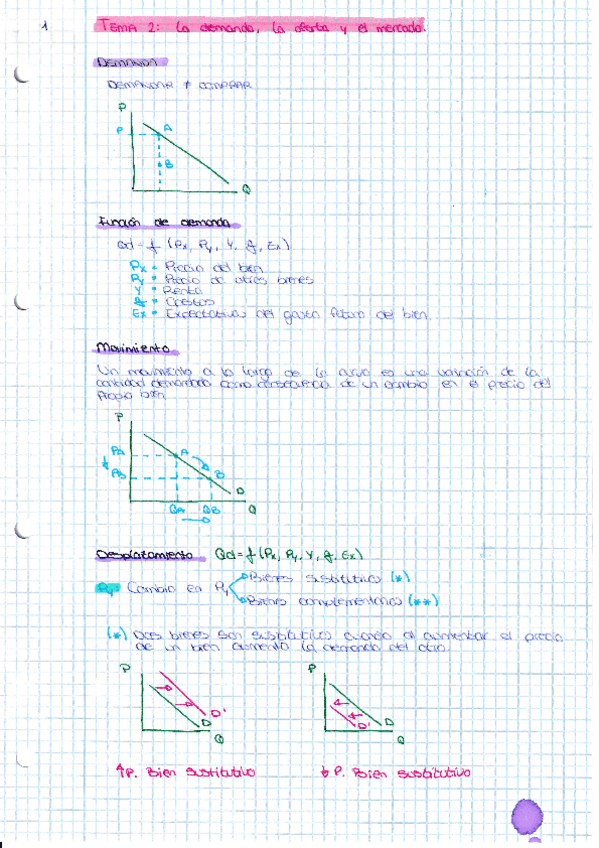 1
TEMA 2: La demanda, la oferta y el mercado.
DEMANDA
DEMANDAR ≠ COMPRAR
P
P A
B
Q
Función de demanda
Qd = f (Px, Py, Y, g, Ex)
Px = Precio del bien
Py = Precio de otros bienes
Y = Renta
g = Gustos
Ex = Expectativas del gasto futuro del bien.
Movimiento
Un movimiento a lo largo de la curva es una variación de la
cantidad demandada como consecuencia de un cambio en el precio del
propio bien
P
PA A
PB B
D
QA QB Q
Desplazamiento Qd = f (Px, Py, Y, g, Ex)
Py: Cambio en Py
Bienes sustitutivo (*)
Bienes complementarios (**)
(*) Dos bienes son sustitutivos cuando al aumentar el precio
de un bien aumenta la demanda del otro.
P P
D' D
D D'
Q Q
↑P. Bien sustitutivo ↓P. Bien sustitutivo